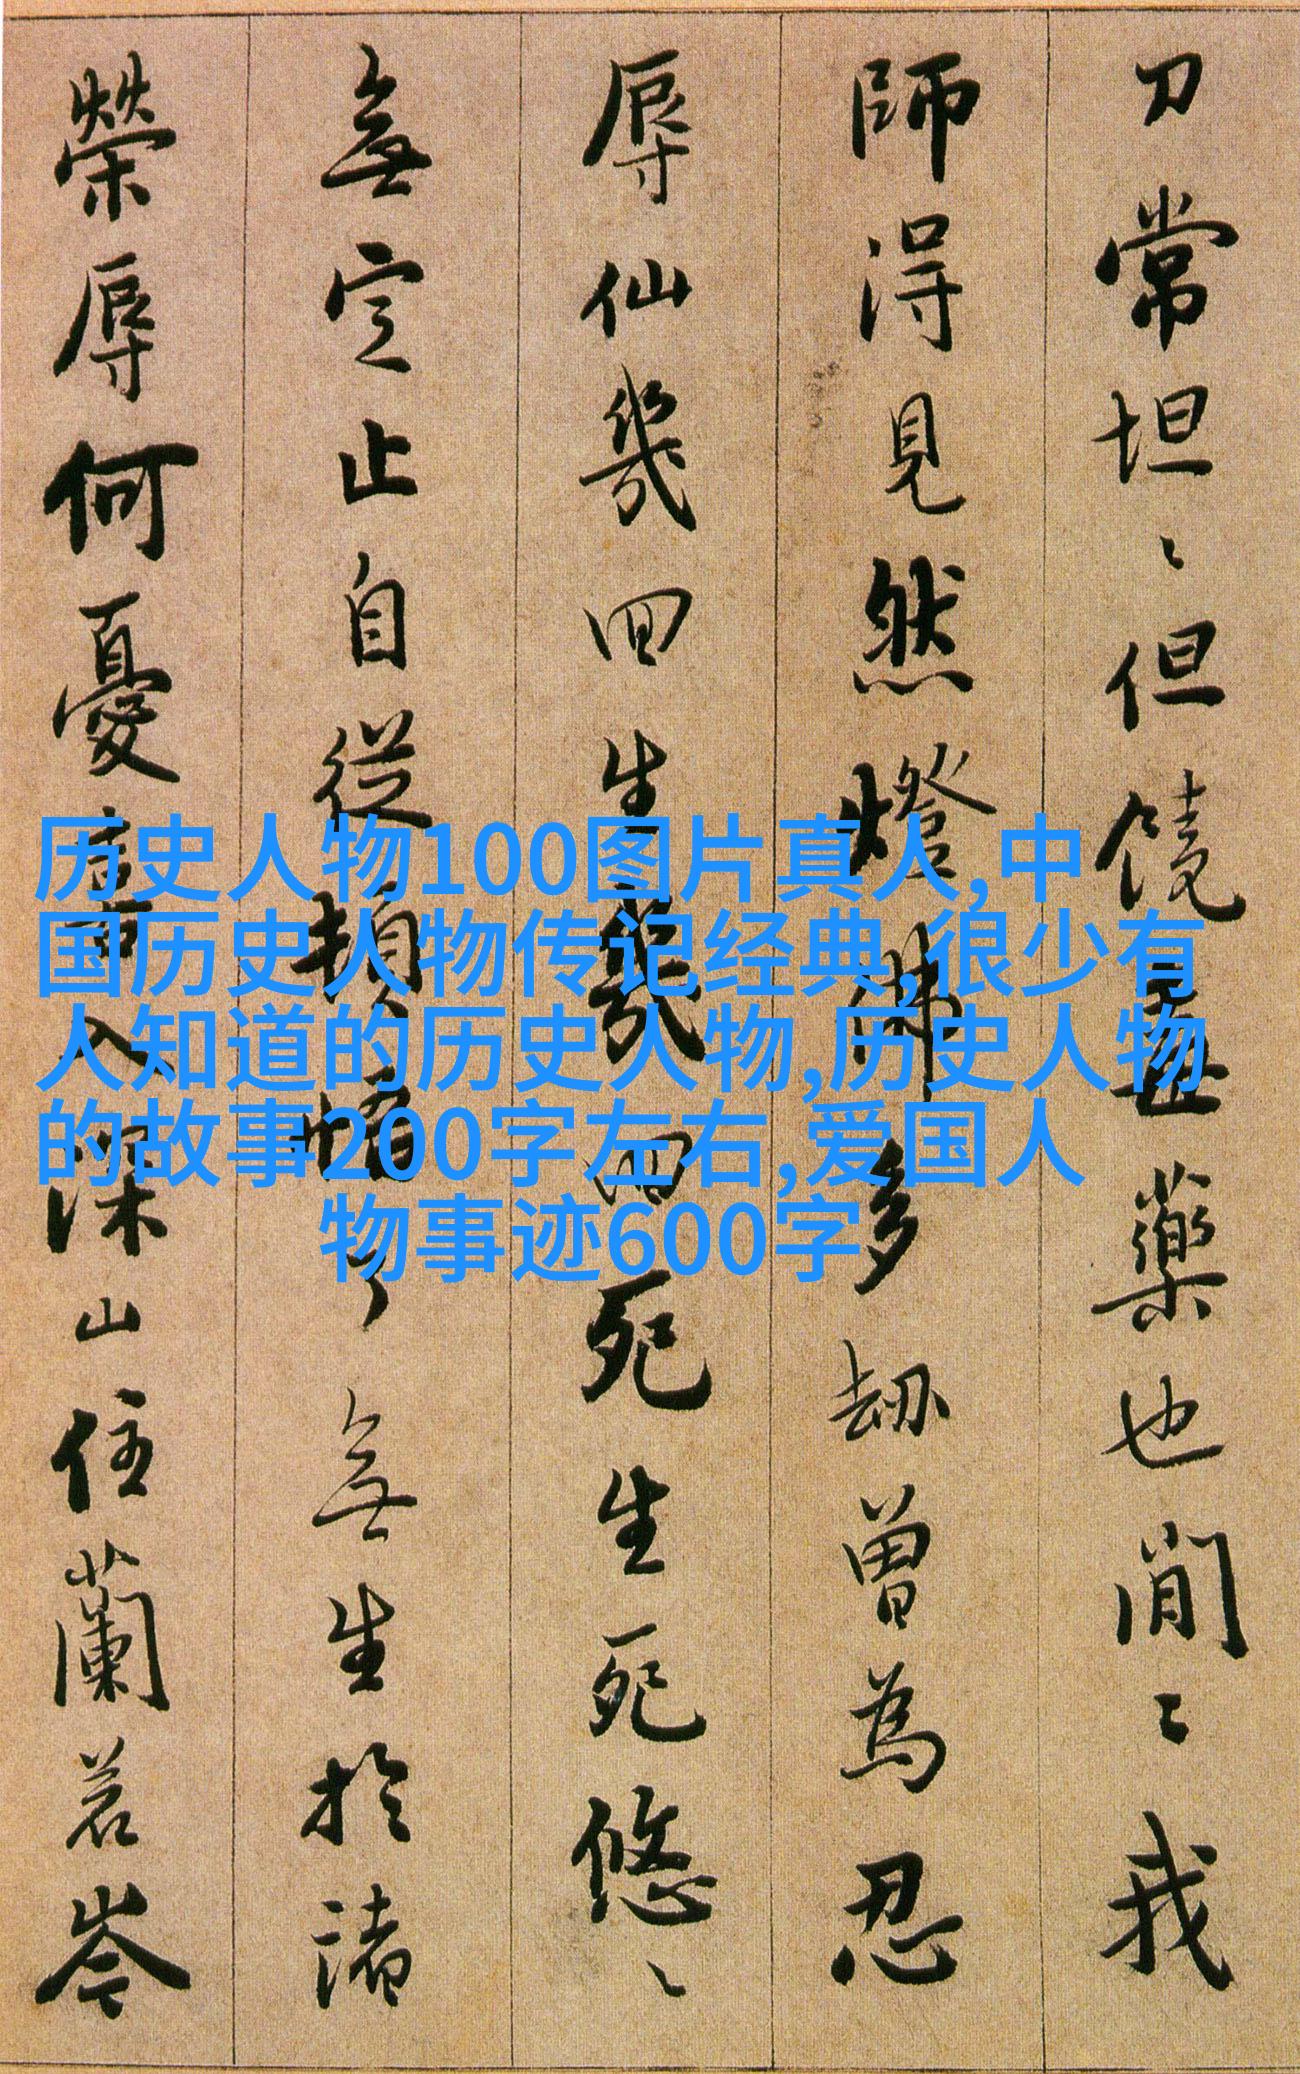 刀常坦々但饒毒藥也閒々我
師得見然燈佛多劫曾為忍
辱仙幾回生幾回死生死悠々
無定止自從頓悟了無生於諸
榮辱何憂喜入深山住蘭若岑
历史人物100图片真人,中
国历史人物传记经典,很少有
人知道的历史人物,历史人物
的故事200字左右,爱国人
物事迹600字